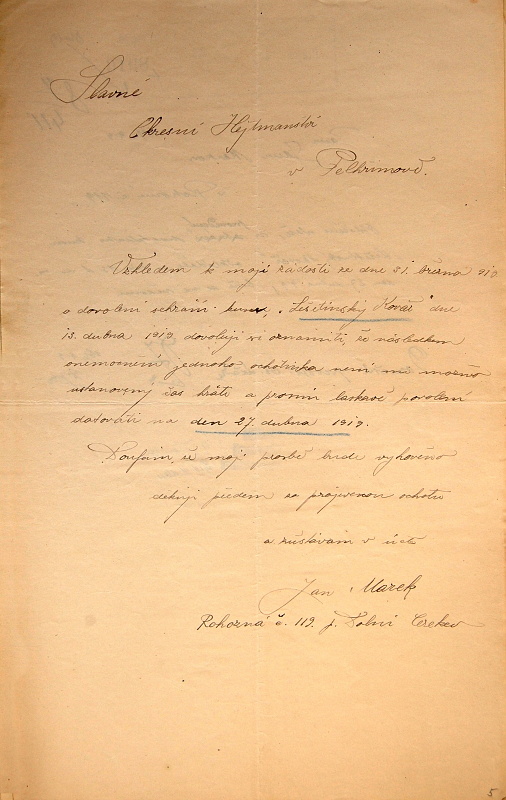 Slavné
Okresní Hejtmanství
v Pelhřimově.
Vzhledem k mojí žádosti ze dne 31. března 919
o dovolení sehráti kusu „Lešetínský Kovář“ dne
13. dubna 1919 dovoluji si oznámiti, že následkem
onemocnění jednoho ochotníka není mi možno
ustanovený čas hráti a prosím laskavě povolení
datovati na den 27. dubna 1919.
Doufám, že mojí prosbě bude vyhověno
děkuji předem za projevenou ochotu
a zůstávám v úctě
Jan Marek
Rohozná č. 119. p. Dolní Cerekev
5